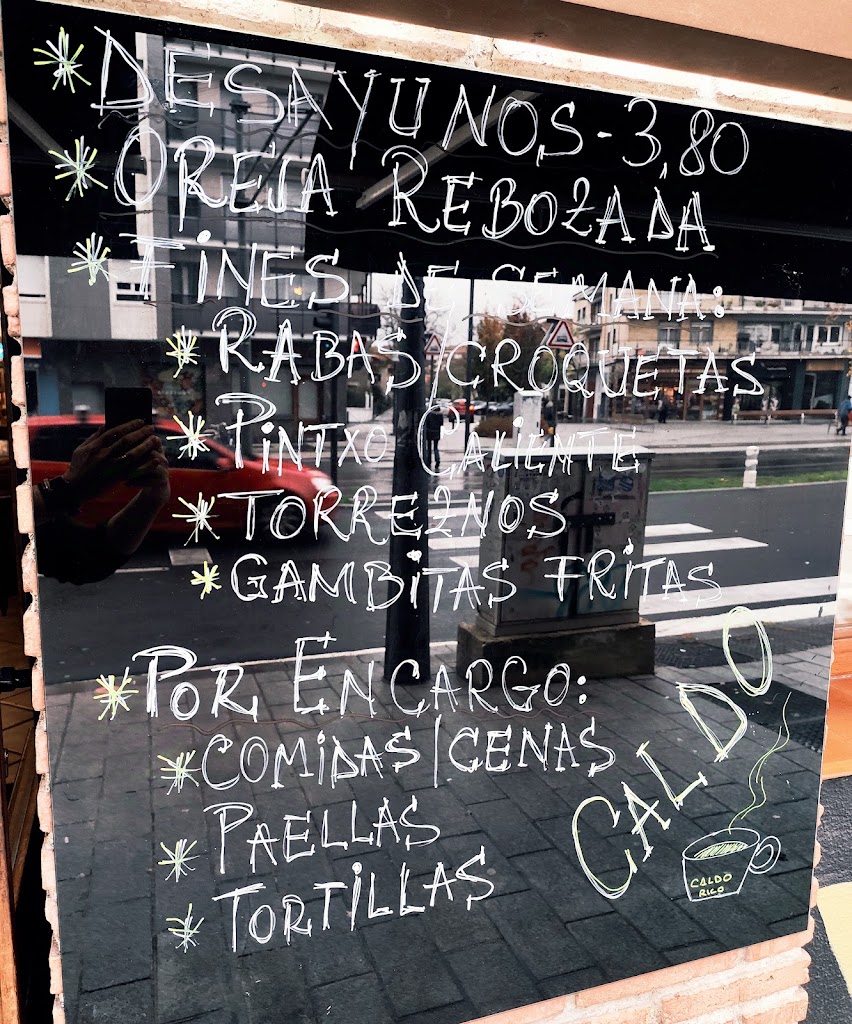 * DESAYUNOS - 3,80
* OREJA REBOZADA
* FINES DE SEMANA:
* RABAS/CROQUETAS
* PINTXO CALIENTE
* TORREZNOS
* GAMBITAS FRITAS
* POR ENCARGO:
* COMIDAS/CENAS
* PAELLAS
* TORTILLAS
CALDO
CALDO
RICO